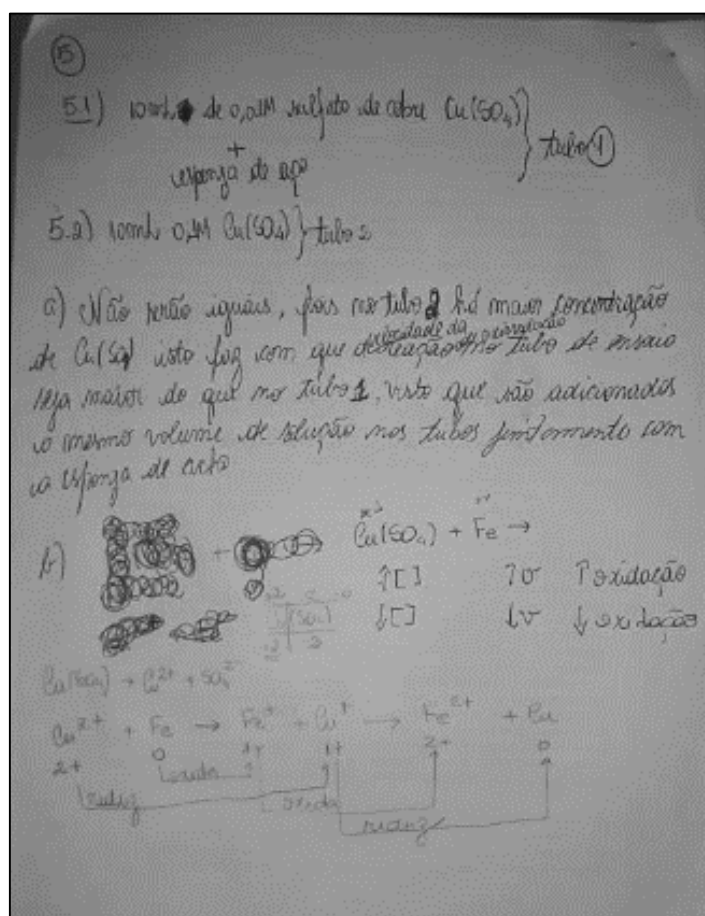 5
5.1) 10mL de 0,01M sulfato de cobre Cu(SO4)
+
esponja de aço
} tubo 1
5.2) 10mL 0,1M Cu(SO4) } tubo 2
a) Não serão iguais, pois no tubo 2 há maior concentração
de Cu(SO4) isto faz com que velocidade da reação no tubo de ensaio
seja maior do que no tubo 1, visto que são adicionados
o mesmo volume de solução nos tubos juntamente com
a esponja de
b) + Cu(SO4) + Fe →
↑[ ] ↑v ↑oxidação
↓[ ] ↓v ↓oxidação
Cu(SO4) → Cu2+ + SO4 2-
Cu2+ + Fe → Fe+ + Cu+ → Fe2+ + Cu
2+ 0 1+ 1+ 2+ 0
oxida
reduz oxida
reduz